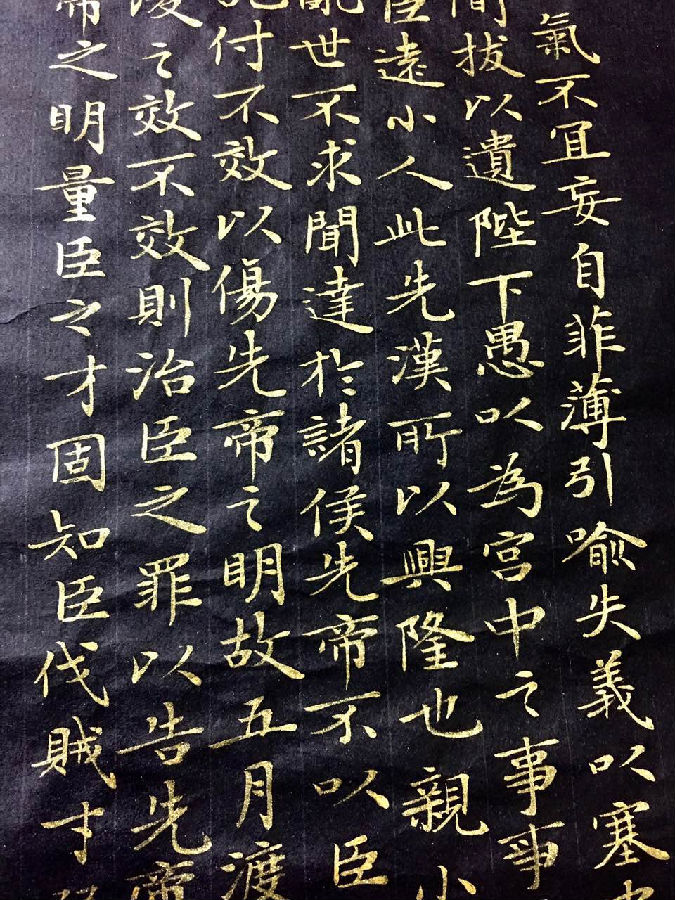 氣不宜妄自菲薄引喻失義以塞
間拔以遺陛下愚以為宮中之事事
臣遠小人此先漢所以興隆也親小
亂世不求聞達於諸侯先帝不以臣
託付不效以傷先帝之明故五月渡
復之效不效則治臣之罪以告先帝
帝之明量臣之才固知臣伐賊才